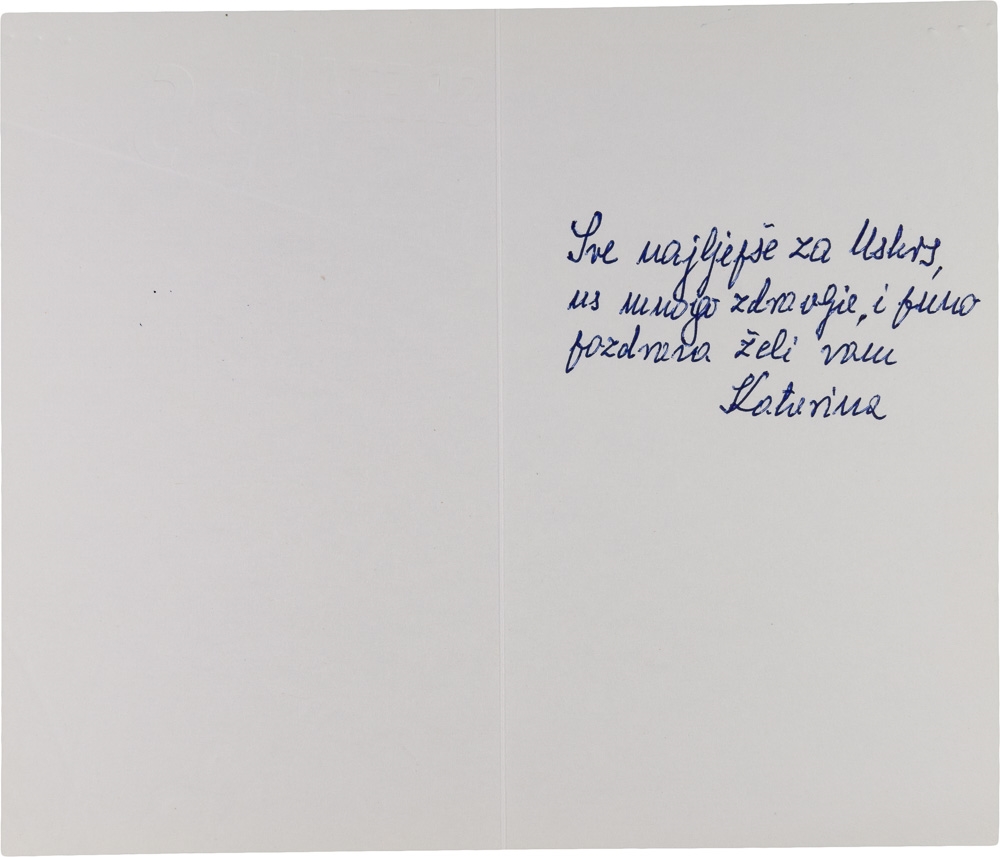 Sve najljepše za Uskrs,
us mnogo zdravlje, i puno
pozdrava želi vam
Katarina